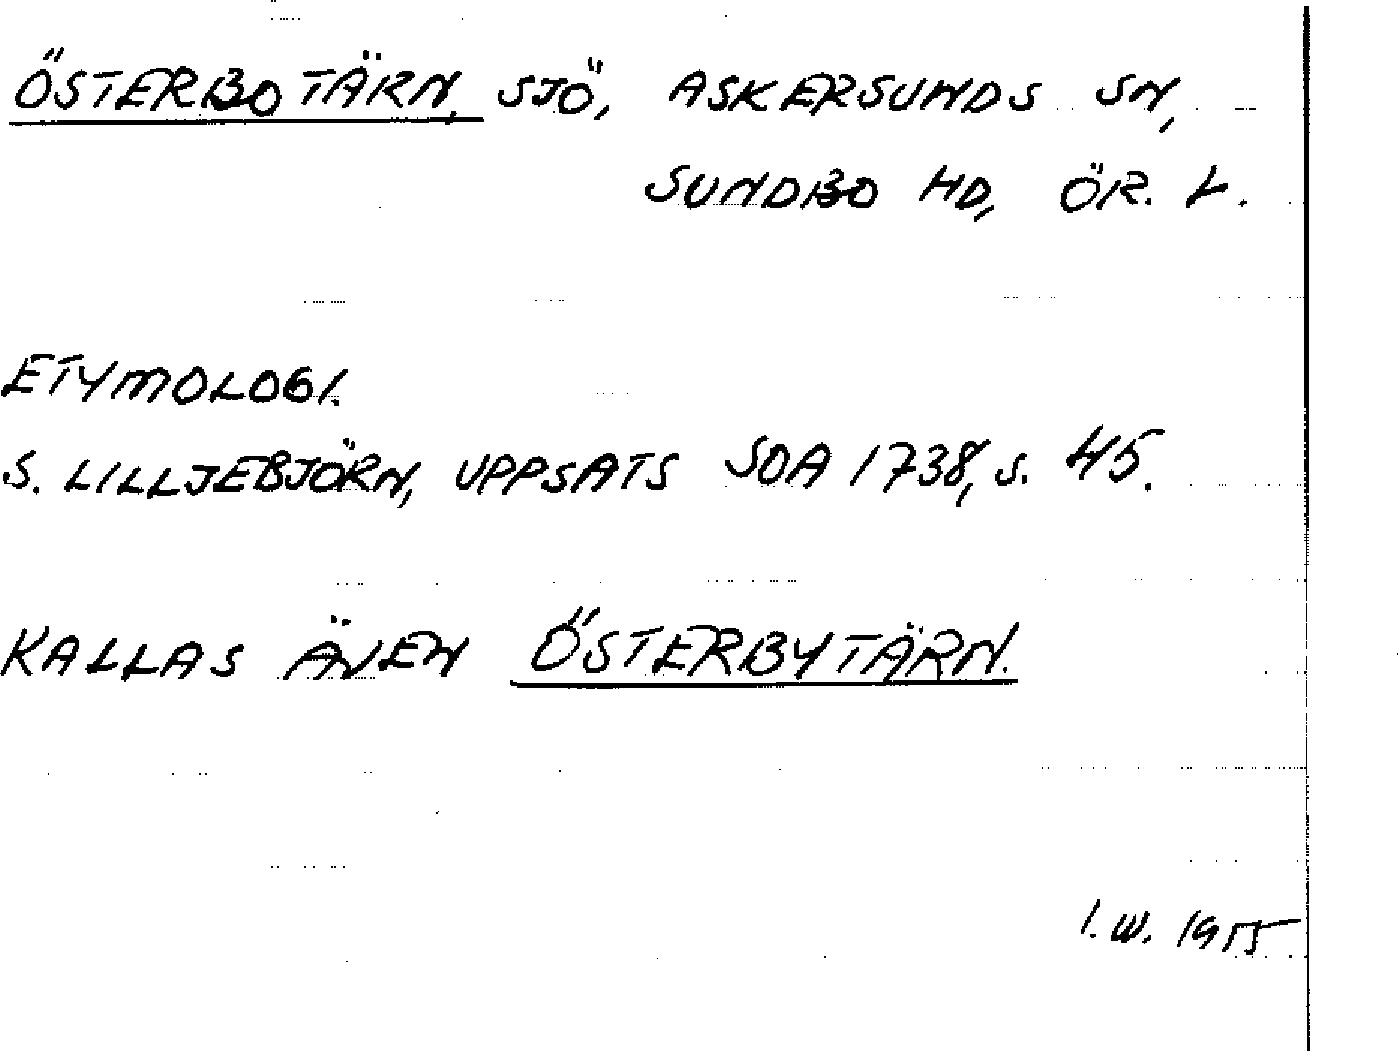 ÖSTERBOTÄRN, SJÖ, ASKERSUNDS SN,
SUNDBO HD, ÖR. L.
ETYMOLOGI.
S. LILLJEBJÖRN, UPPSATS SOA 1738, S. 45.
KALLAS ÄVEN ÖSTERBYTÄRN.
I. W. 1955